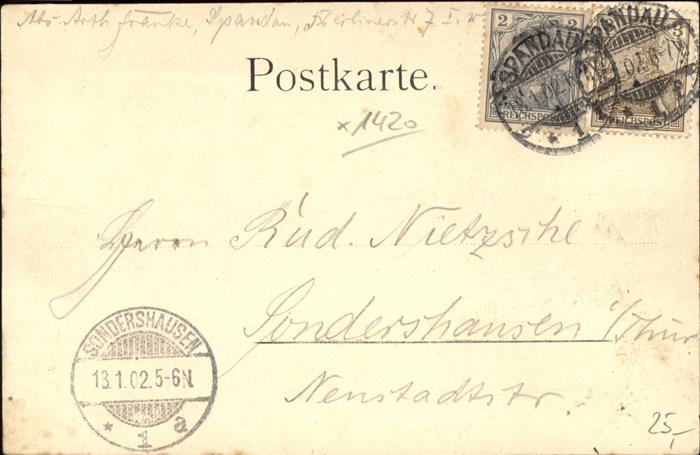 Abs. Arth. Franke, Spandau, Berlinerstr 7 I.
2 2
REICHSPOST
3
REICHSPOST
SPANDAU
02.6-7
* 1
SPANDAU
02.6-7
* 1 a
Postkarte.
x 1420
Herrn Rud. Nietzsche
Sondershausen i/Thür
Neustadtstr.
SONDERSHAUSEN
13.1.02.5-6N.
* 1 a
25,-